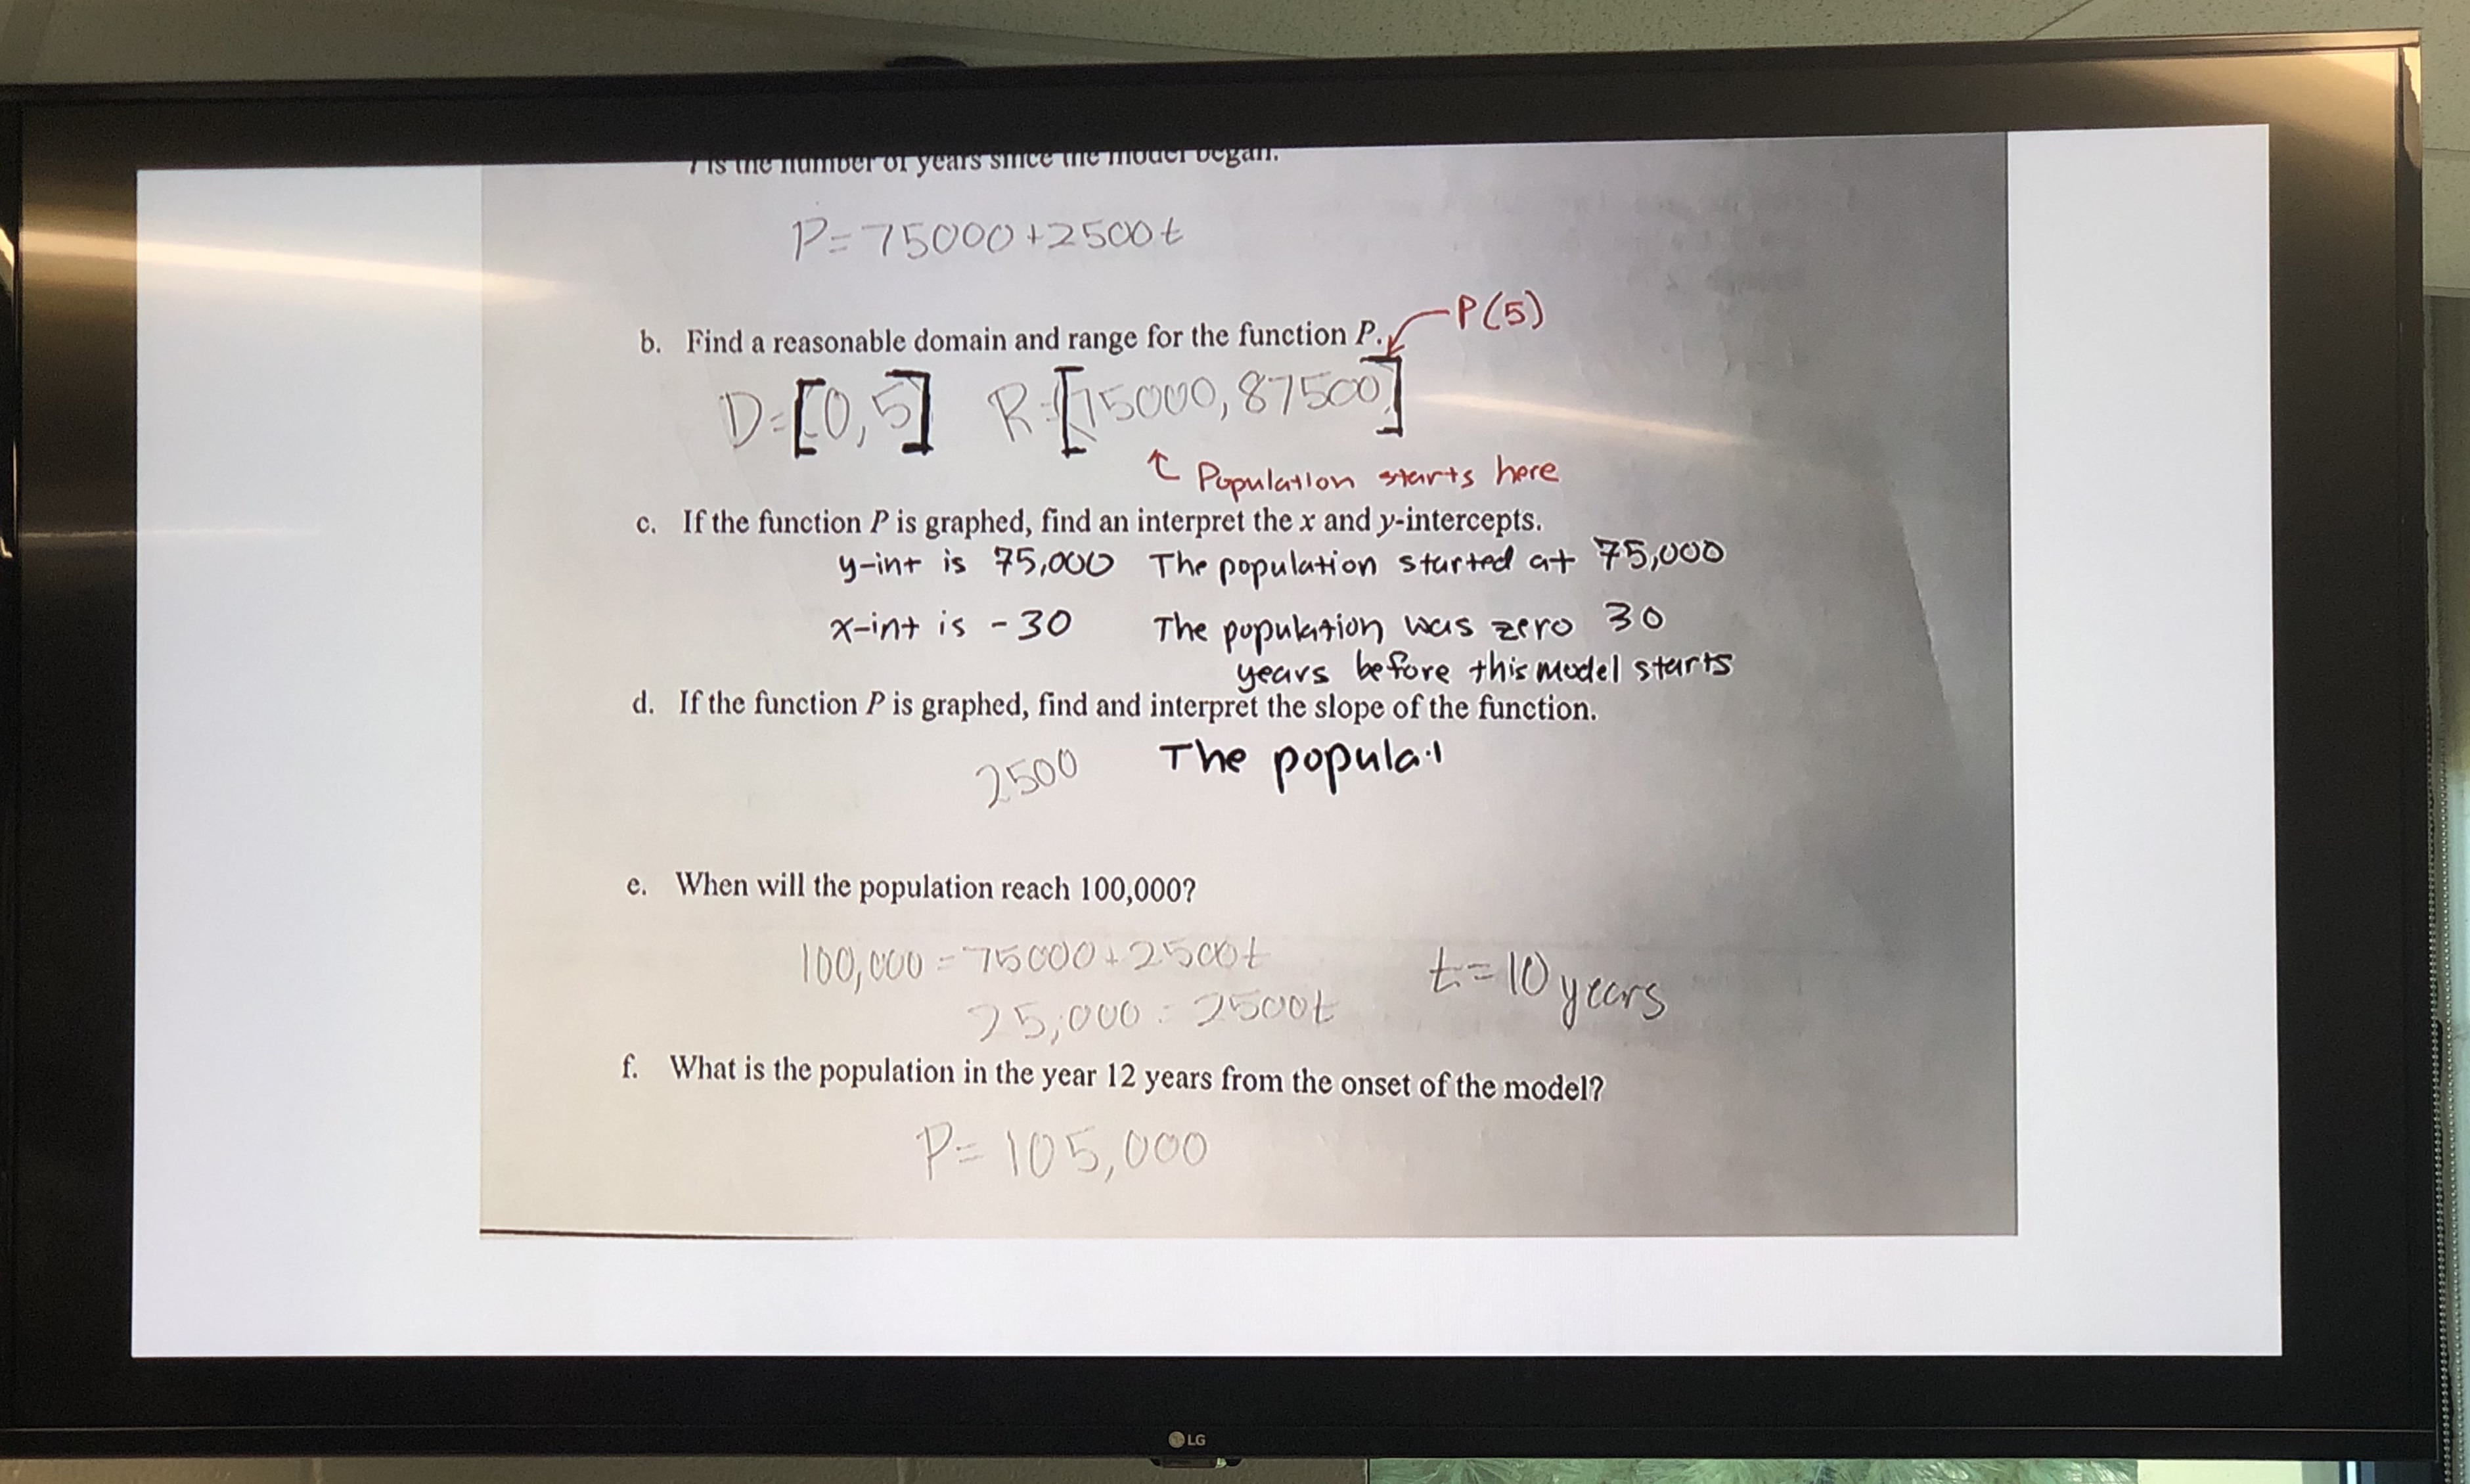 is the number of years since the model began.
P=75000+2500t
P(5)
b. Find a reasonable domain and range for the function P.
D=[0,5] R=[75000,87500]
Population starts here
c. If the function P is graphed, find an interpret the x and y-intercepts.
y-int is 75,000 The population started at 75,000
x-int is -30 The population was zero 30
years before this model starts
d. If the function P is graphed, find and interpret the slope of the function.
2500 The populat
e. When will the population reach 100,000?
100,000=75000+2500t t=10 years
25,000=2500t
f. What is the population in the year 12 years from the onset of the model?
P=105,000
LG